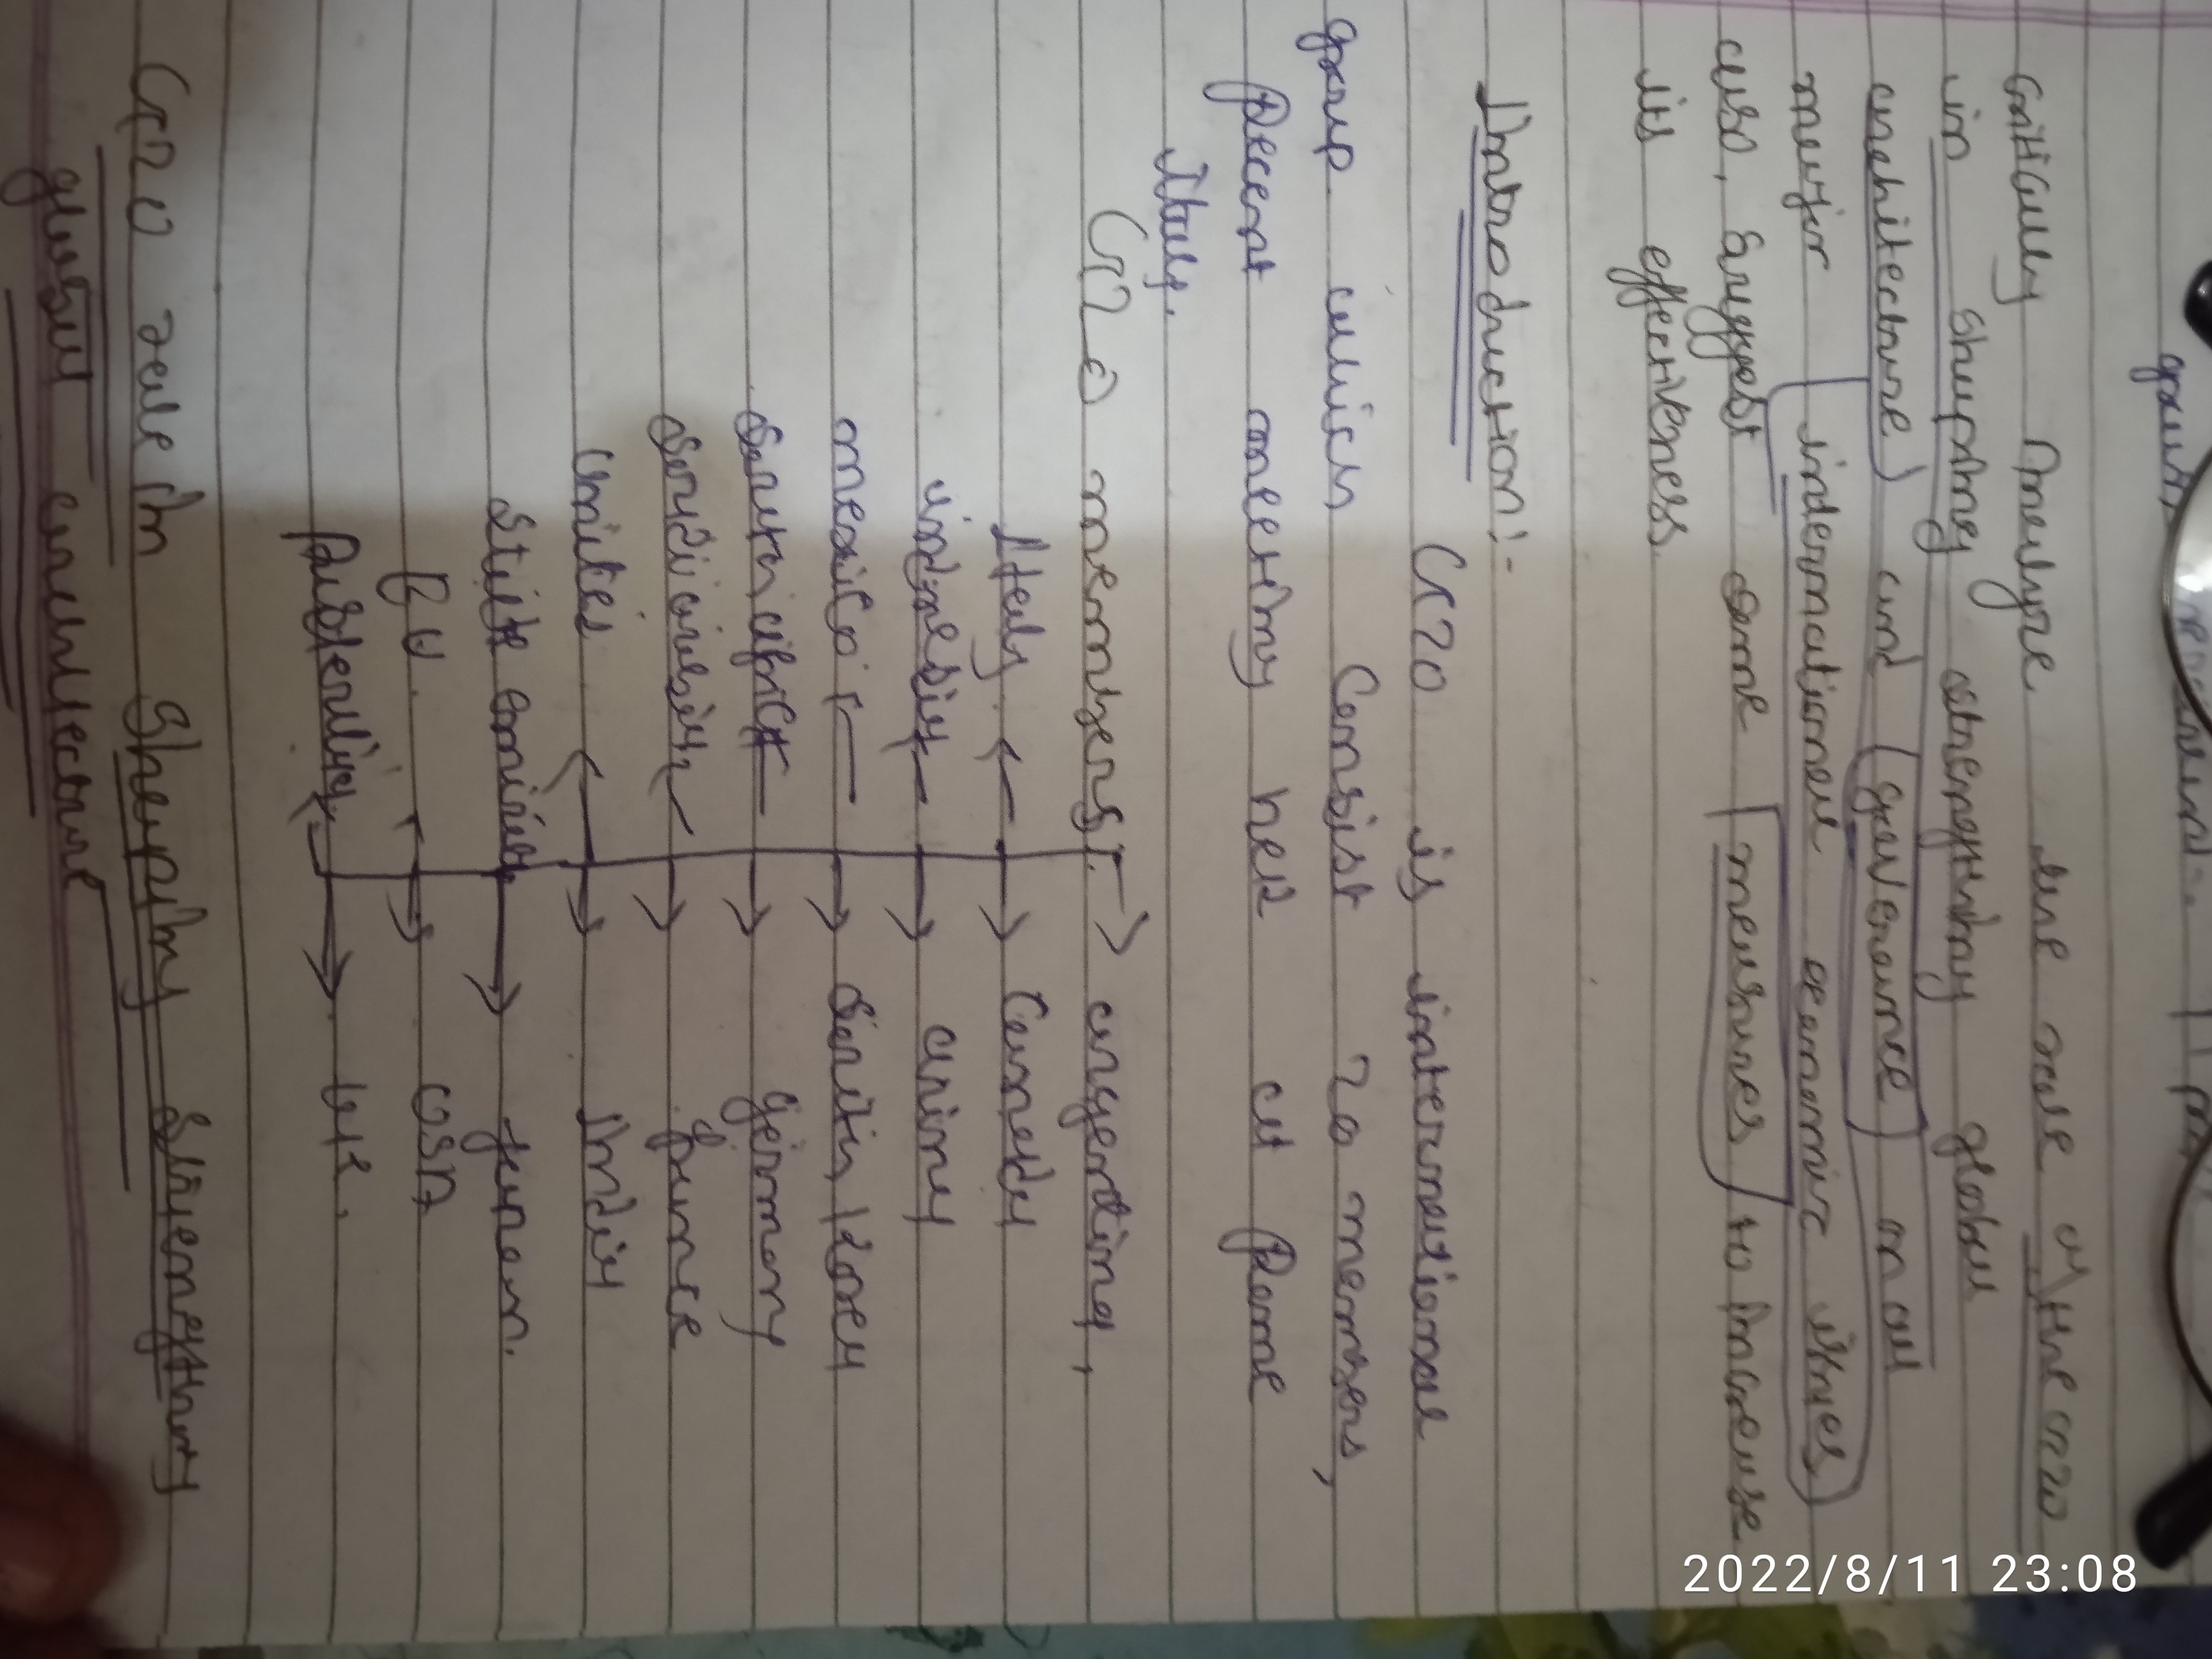 Critically Analyze the role of the G20
in shaping strengthing global
architecture and governance on all
major international economic issues
also, suggest some measures to increase
its effectiveness.
Introduction:-
G20 is international
group which Consist 20 members,
Recent meeting held at Rome
Italy.
G20 members: → argentina,
Italy ← → Canada
indonesia ← → China
mexico ← → South Korea
South africa ← → Germany
Soudi arabia ← → France
United ← → India
State emirates → Japan.
EU. ← → USA
Australia ← → UK.
G20 role in Shaping Strengthing
global architecture
2022/8/11 23:08